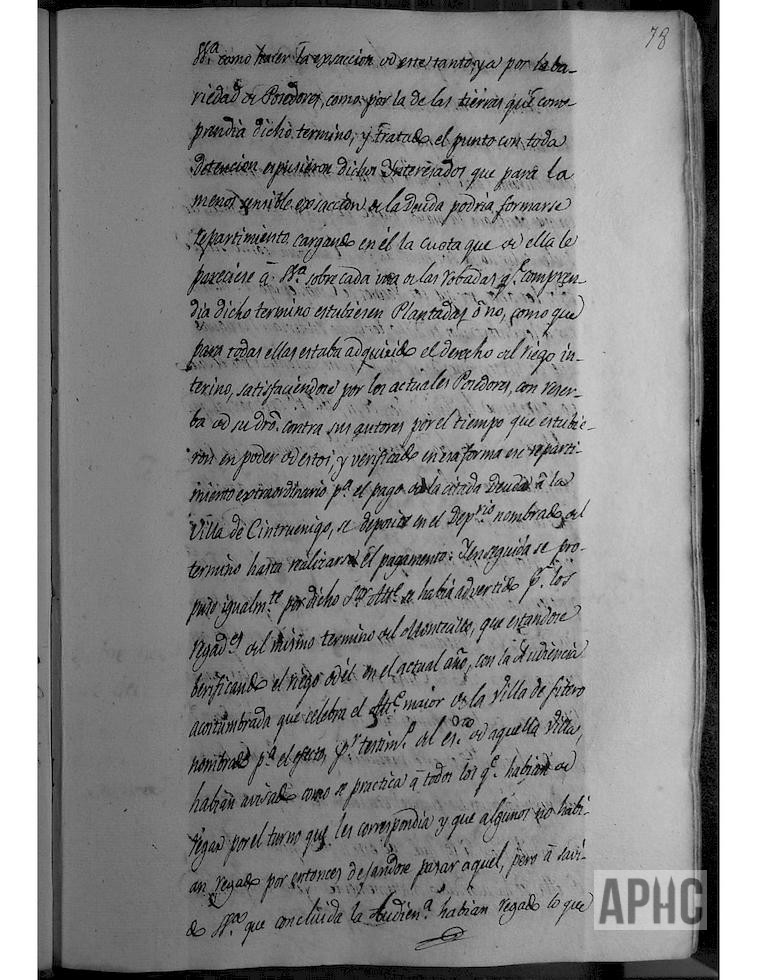 78
S.ª como hacer la exaccion de este tanto, ya por la ba-
riedad de Posedores, como por la de las tierras que com-
prendia dicho termino; y tratado el punto con toda
detencion expusieron dichos Interesados que para la
menos sensible exaccion de la Deuda podria formarse
repartimiento cargando en él la cuota que de ella le
pareciese á S.ª sobre cada una de las robadas q.e compren-
dia dicho termino estubiesen Plantadas ó no, como que
para todas ellas estaba adquirido el derecho del riego in-
terino, satisfaciendose por los actuales Posedores, con reser-
ba de su dro. contra sus autores por el tiempo que estubie-
ron en poder de estos, y verificado en esa forma ese reparti-
miento extraordinario p.ª el pago de la citada Deuda á la
Villa de Cintruenigo, se deposite en el Dep.rio nombrado del
termino hasta realizarse el pagamento: Y enseguida se pro-
puso igualm.te por dicho S.or Alc.e se habia advertido p.r los
regad.es del mismo termino del Montecillo, que estandose
berificando el riego de él en el actual año, con la Audiencia
acostumbrada que celebra el Alc.e maior de la Villa de Fitero
nombrado p.ª el efecto, p.r testim.o del es.no de aquella Villa,
habian avisado como se practica á todos los q.e habian de
regar por el turno que les correspondia y que algunos no habi-
an regado por entonces dejandose pasar aquel, pero á savi-
que concluida la Audien.ª habian regado lo que
APHC